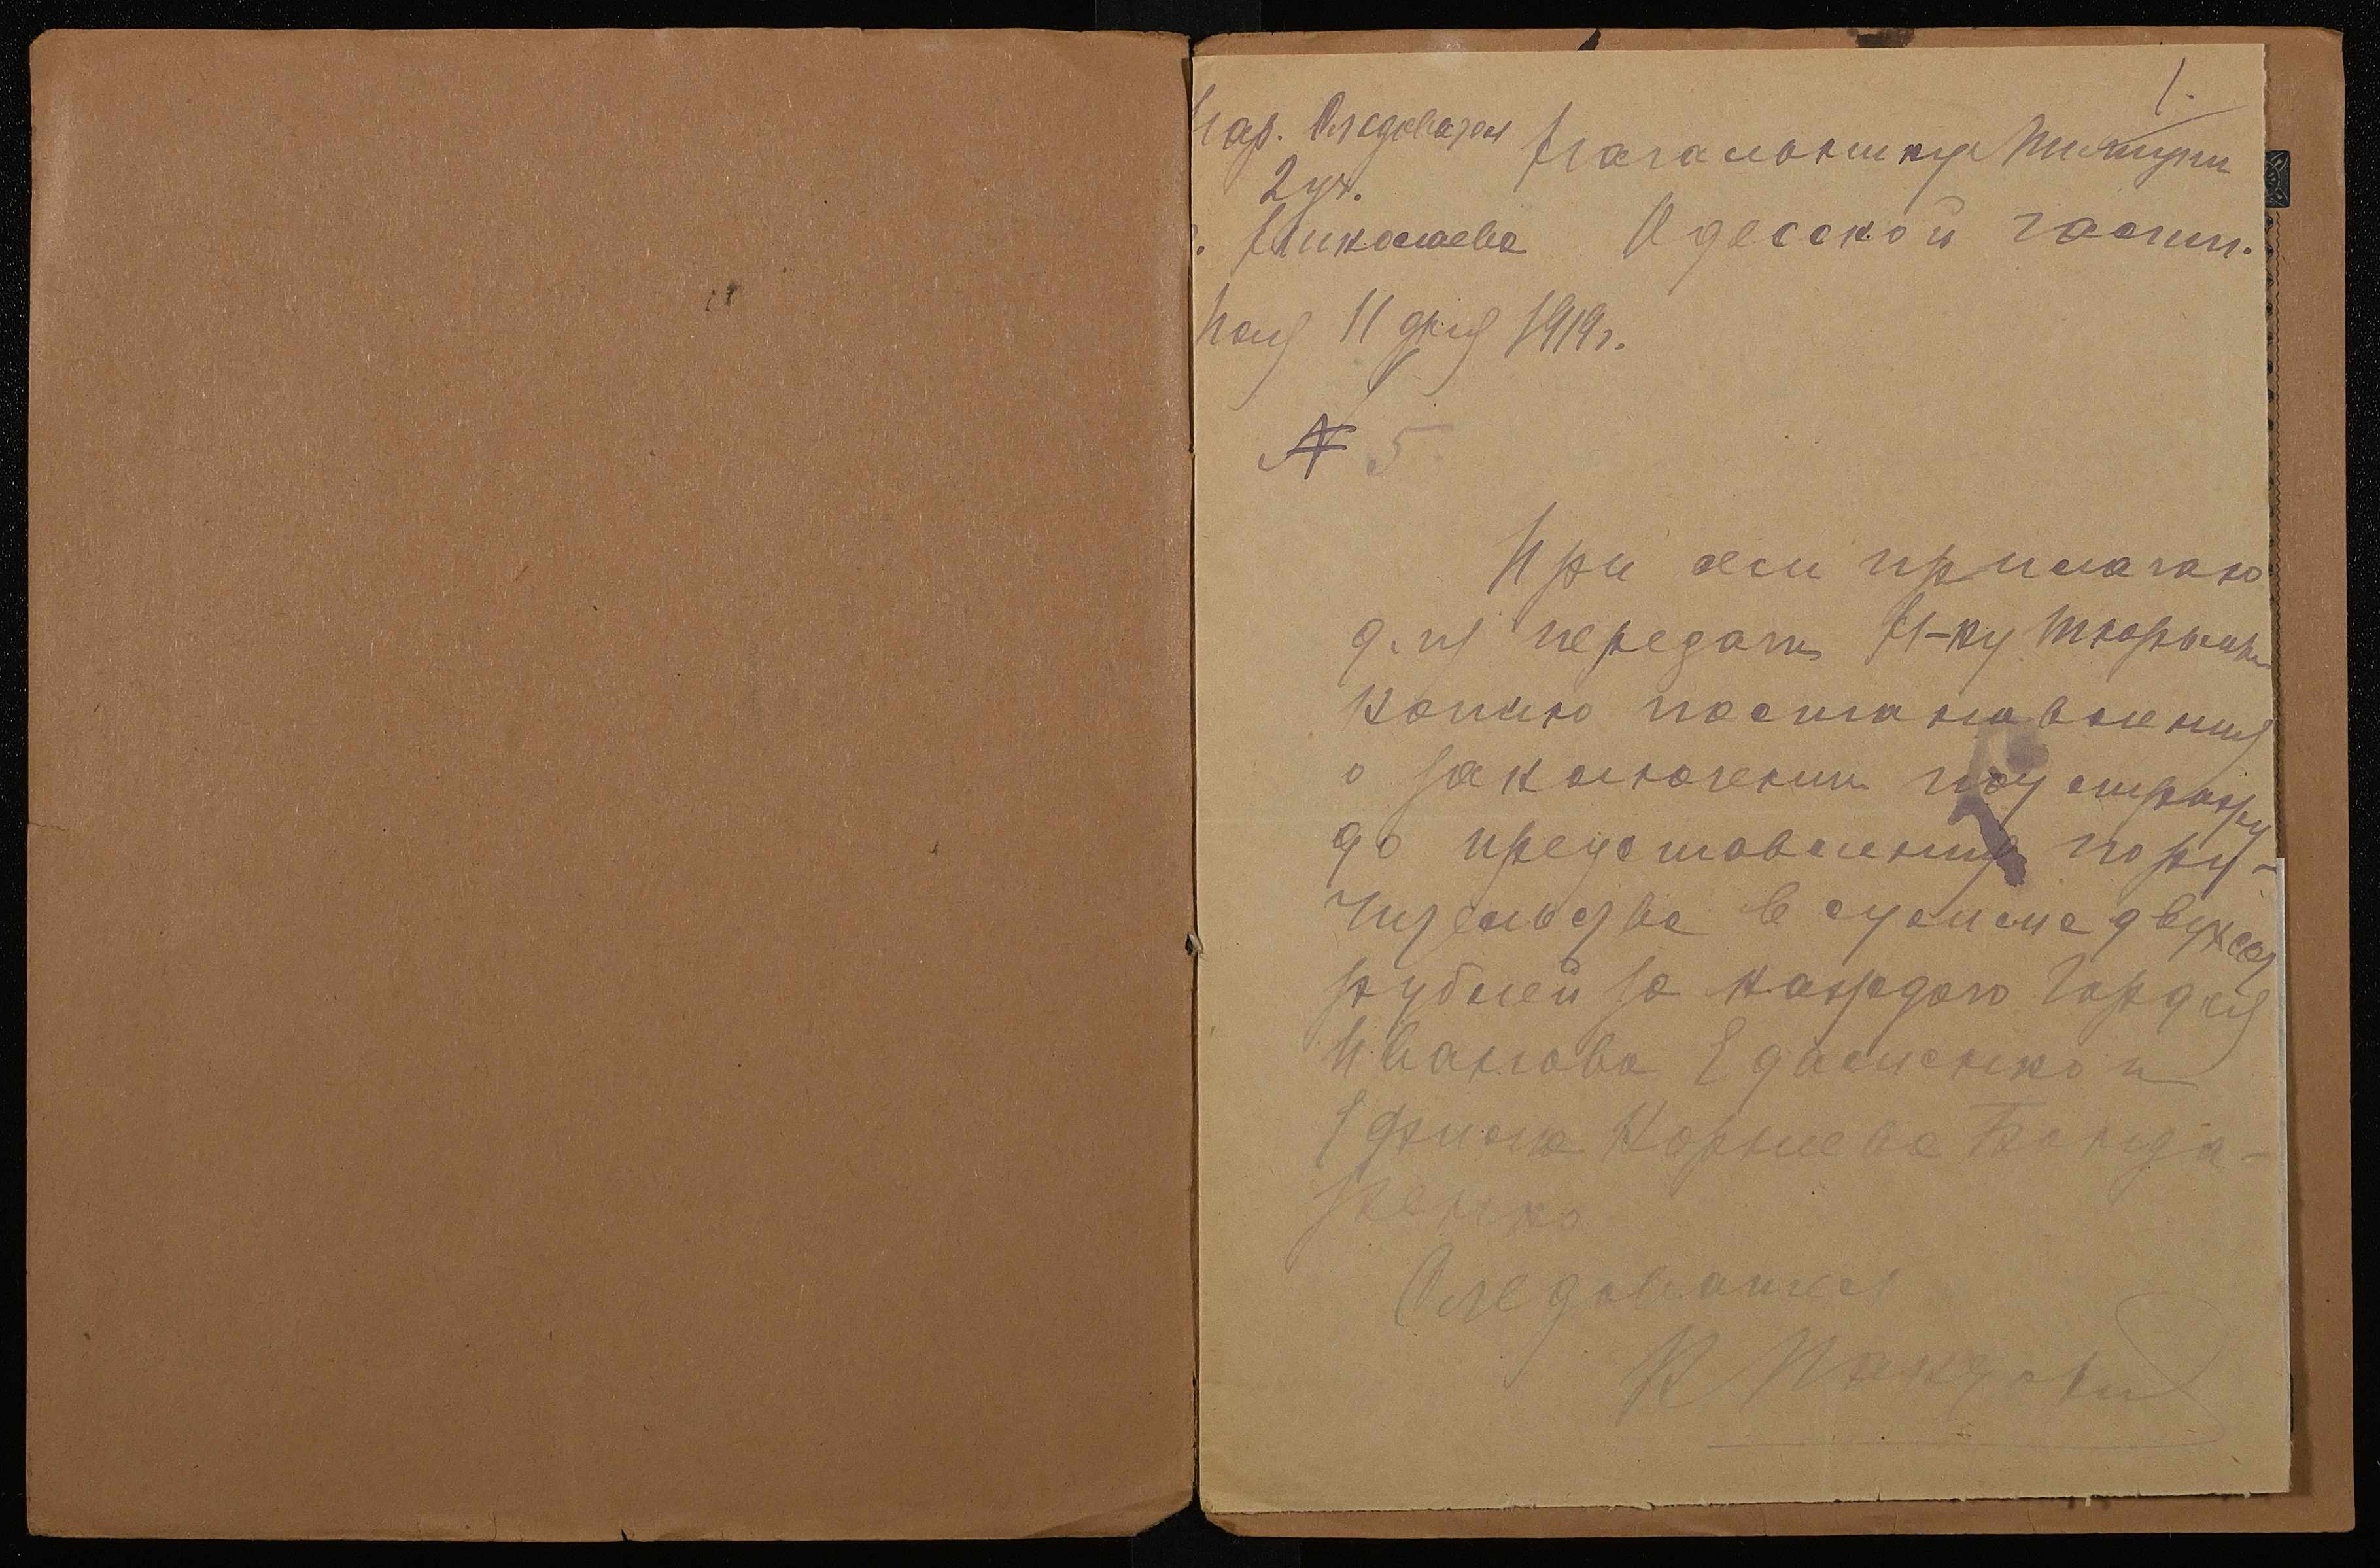 1.
Нар. Следователь
2 уч.
г. Николаева
Начальнику Милиции
Одесской части.
Мая 11 дня 1919 г.
№ 5
При сем прилагаю
для передачи Н-ку Тюрьмы
копию постановления
о заключении под стражу
до представления пору-
чительства в сумме двухсот
рублей за каждого Гордея
Иванова Едаменко и
Ефима Корнеева Бонда-
ренко
Следователь